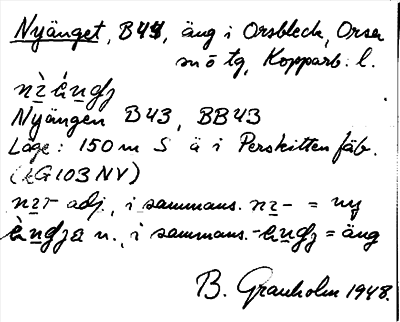 Nyänget, B44, äng i Orsbleck, Orsa
sn ö tg, Kopparb. l.
Nyängen B43, BB43
Läge: 150 m S ä i Perskitten fäb.
(kG103NV)
adj., i sammans. = ny
n., i sammans. = äng
B. Granholm 1948.